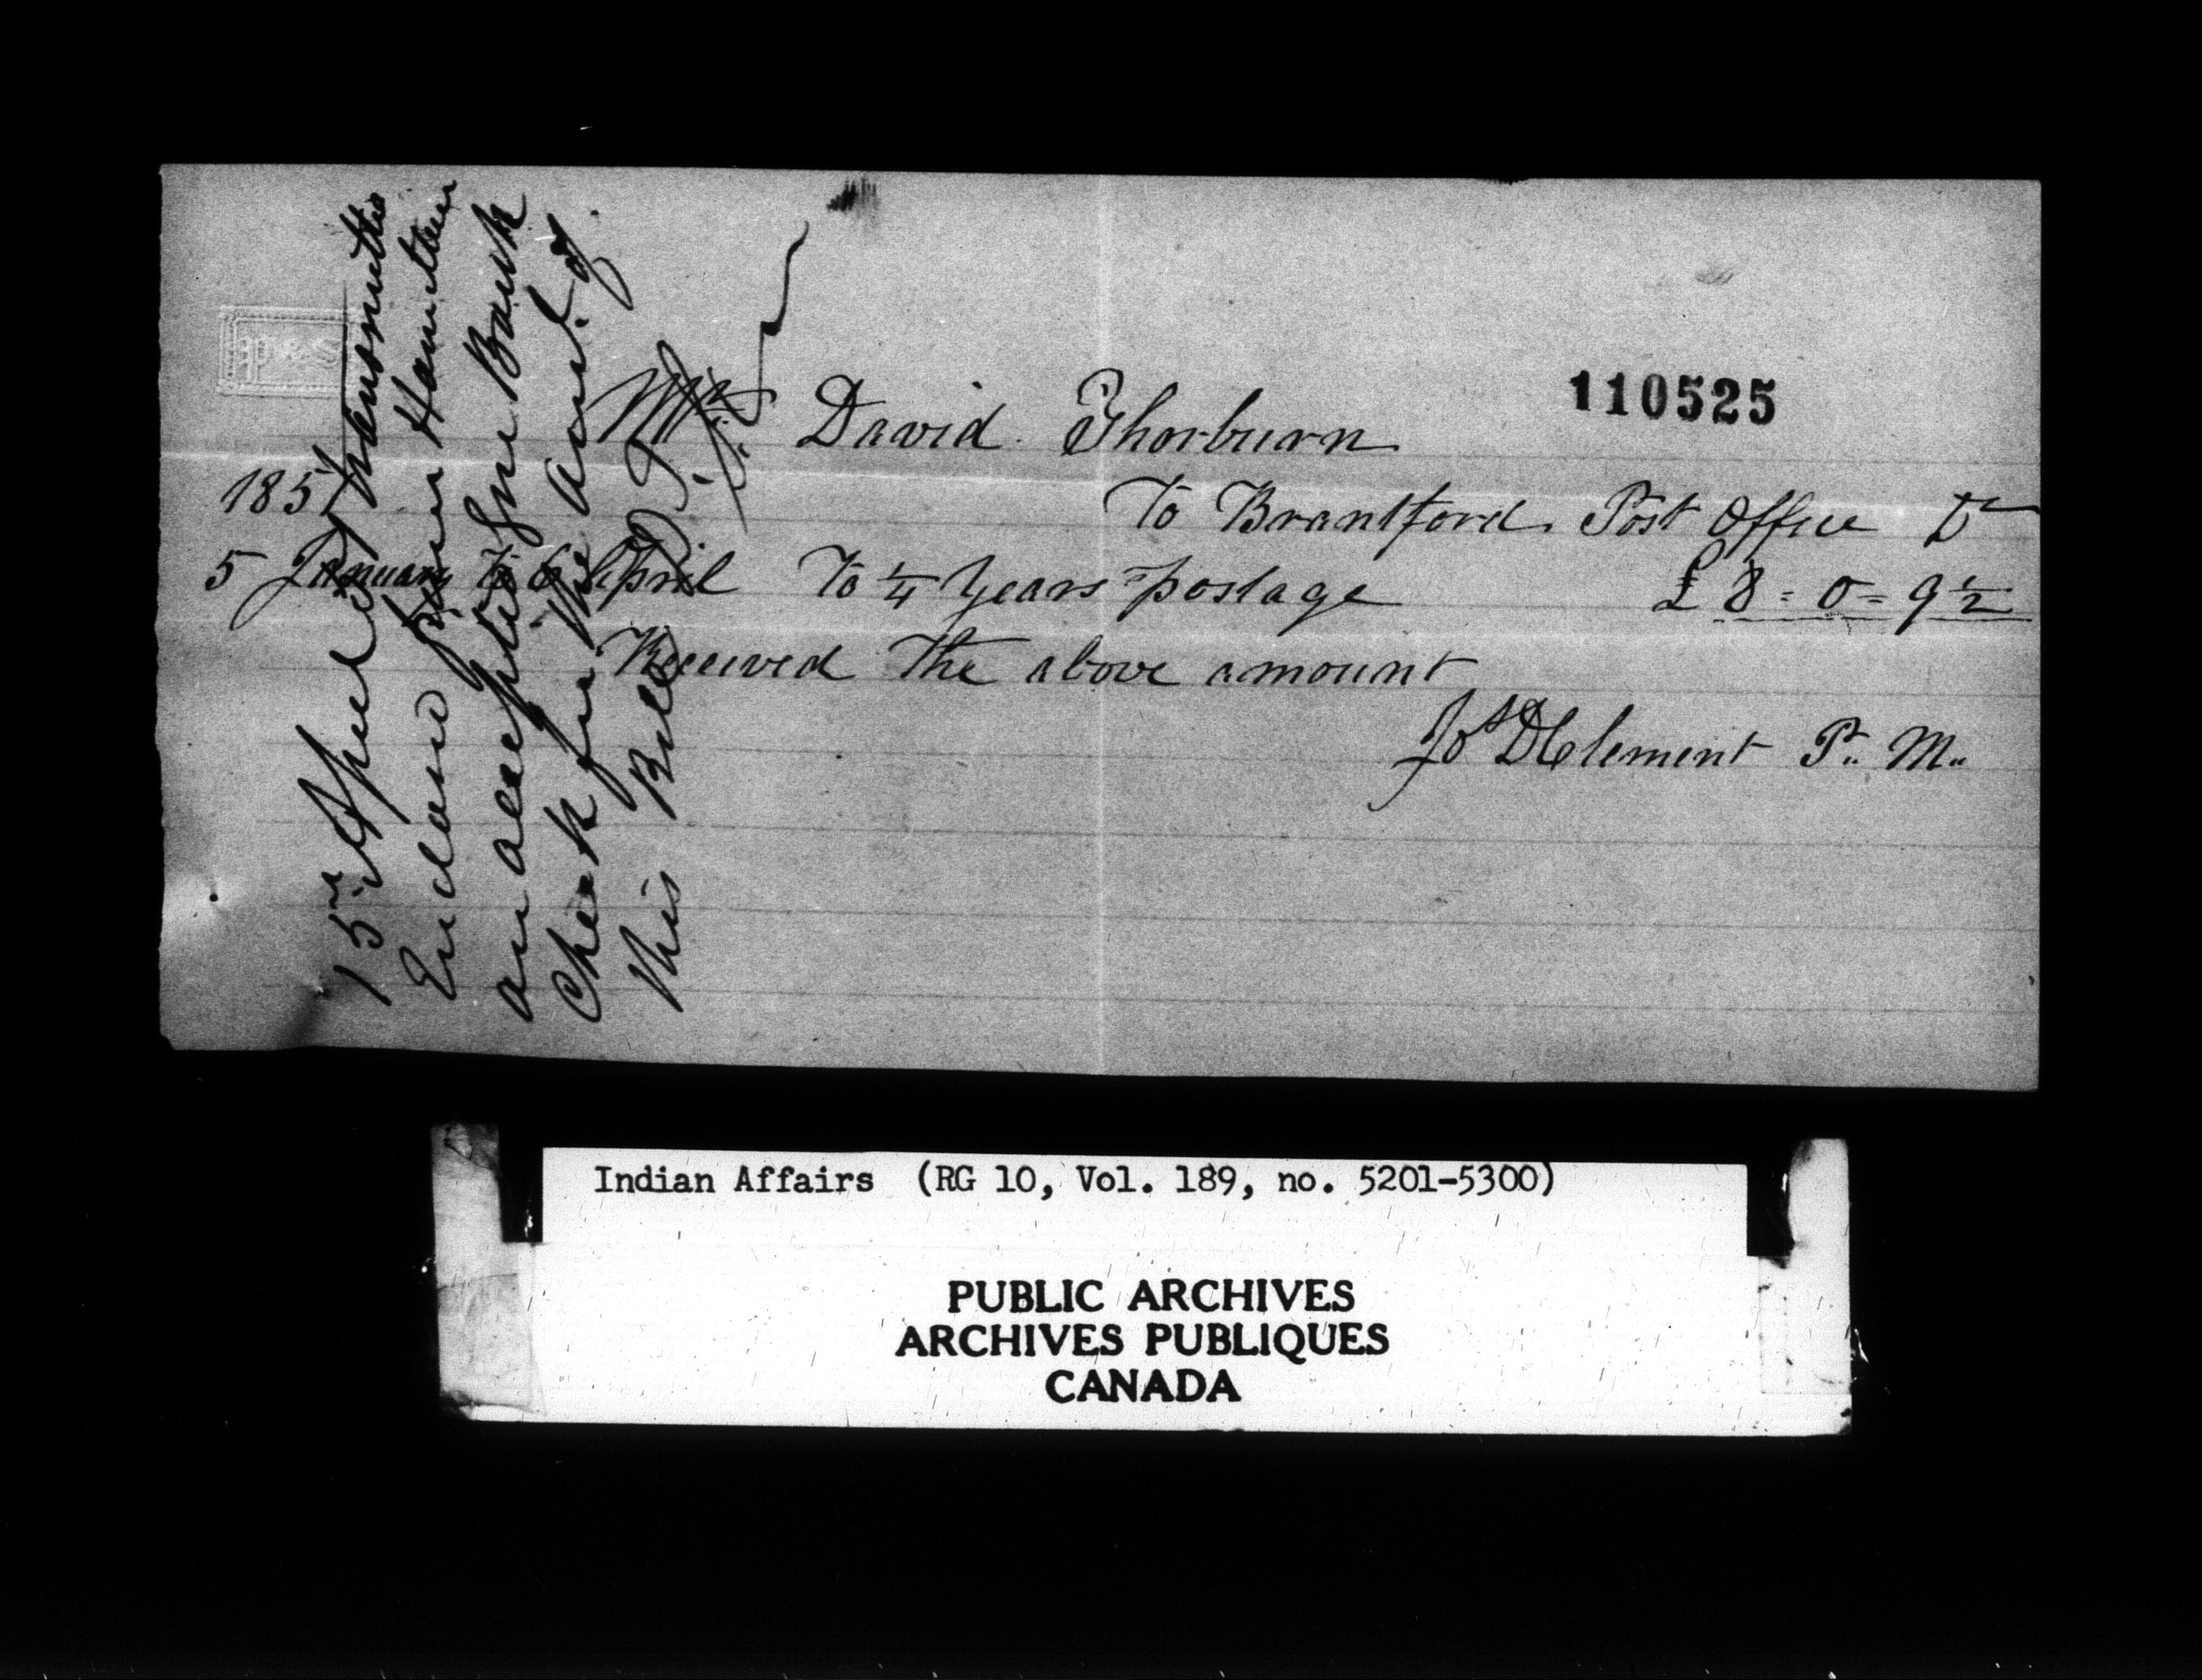 110525
Mr David Thorburn
1851 To Brantford Post Office Dr
5 January to 6 April To 1/4 Years postage £ 8 = 0 = 9 1/2
Received the above amount
Js D Clement P. M.
15 April transmitted
Enclosed from Hamilton
an accepted Gore Bank
Check for the Amt. of
this Bill D. T.
Indian Affairs (RG 10, Vol. 189, no. 5201-5300)
PUBLIC ARCHIVES
ARCHIVES PUBLIQUES
CANADA